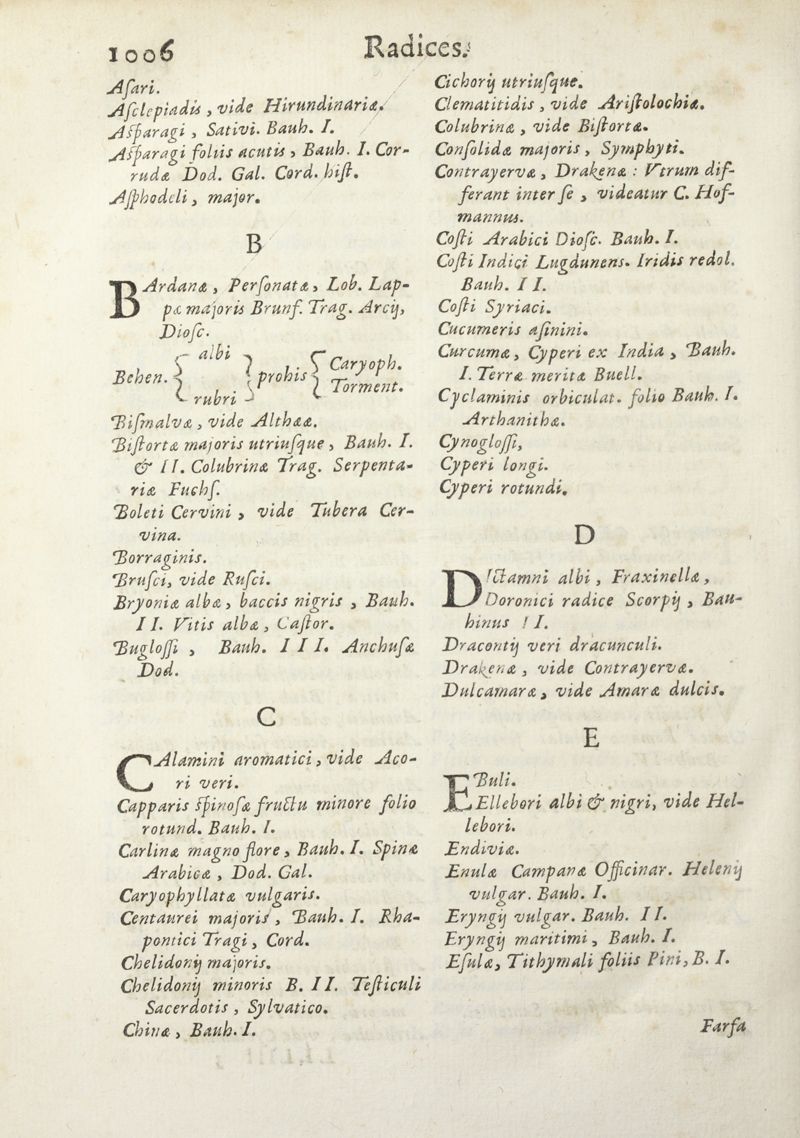 1006
Radices.
Aſari.
Aſclepiadis, vide Hirundinariæ.
Aſparagi, Sativi. Bauh. I.
Aſparagi foliis acutis, Bauh. I. Cor-
rudæ Dod. Gal. Cord. hiſt.
Aſphodeli, major.
B
BArdanæ, Perſonatæ, Lob. Lap-
pæ majoris Brunf. Trag. Arcij,
Dioſc.
Behen. { albi } prohis { Caryoph.
rubri Torment.
Biſmalvæ, vide Althææ.
Biſtortæ majoris utriuſque, Bauh. I.
& II. Colubrinæ Trag. Serpenta-
riæ Fuchſ.
Boleti Cervini, vide Tubera Cer-
vina.
Borraginis.
Bruſci, vide Ruſci.
Bryoniæ albæ, baccis nigris, Bauh.
II. Vitis albæ, Caſtor.
Bugloſſi, Bauh. III. Anchuſæ
Dod.
C
CAlamini aromatici, vide Aco-
ri veri.
Capparis ſpinoſæ fructu minore folio
rotund. Bauh. I.
Carlinæ magno flore, Bauh. I. Spinæ
Arabicæ, Dod. Gal.
Caryophyllatæ vulgaris.
Centaurei majoris, Bauh. I. Rha-
pontici Tragi, Cord.
Chelidonij majoris.
Chelidonij minoris B. II. Teſticuli
Sacerdotis, Sylvatico.
Chinæ, Bauh. I.
Cichorij utriuſque.
Clematitidis, vide Ariſtolochiæ.
Colubrinæ, vide Biſtortæ.
Conſolidæ majoris, Symphyti.
Contrayervæ, Drakenæ: Vtrum dif-
ferant inter ſe, videatur C. Hof-
mannus.
Coſti Arabici Dioſc. Bauh. I.
Coſti Indici Lugdunens. Iridis redol.
Bauh. II.
Coſti Syriaci.
Cucumeris aſinini.
Curcumæ, Cyperi ex India, Bauh.
I. Terræ meritæ Buell.
Cyclaminis orbiculat. folio Bauh. I.
Arthanithæ.
Cynogloſſi,
Cyperi longi.
Cyperi rotundi.
D
DIctamni albi, Fraxinellæ,
Doronici radice Scorpij, Bau-
hinus II.
Dracontij veri dracunculi.
Drakenæ, vide Contrayervæ.
Dulcamaræ, vide Amaræ dulcis.
E
EBuli.
Ellebori albi & nigri, vide Hel-
lebori.
Endiviæ.
Enulæ Campanæ Officinar. Helenij
vulgar. Bauh. I.
Eryngij vulgar. Bauh. II.
Eryngij maritimi, Bauh. I.
Eſulæ, Tithymali foliis Pini, B. I.
Farfa